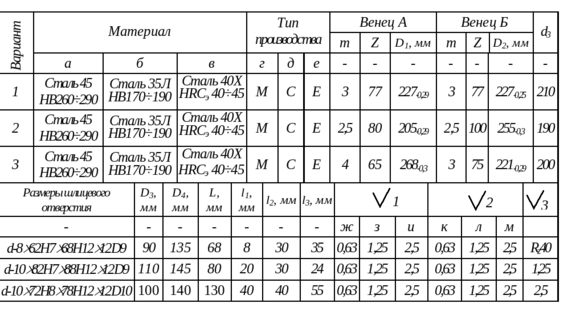 Вариант Материал Тип производства Венец А Венец Б d3
m Z D1, мм m Z D2, мм
а б в г д е - - - - - - -
1 Сталь 45 HB260÷290 Сталь 35Л HB170÷190 Сталь 40Х HRCэ 40÷45 М С Е 3 77 227-0,29 3 77 227-0,25 210
2 Сталь 45 HB260÷290 Сталь 35Л HB170÷190 Сталь 40Х HRCэ 40÷45 М С Е 2,5 80 205-0,29 2,5 100 255-0,3 190
3 Сталь 45 HB260÷290 Сталь 35Л HB170÷190 Сталь 40Х HRCэ 40÷45 М С Е 4 65 268-0,3 3 75 221-0,29 200
Размеры шлицевого отверстия D3, мм D4, мм L, мм l1, мм l2, мм l3, мм √ 1 √ 2 √ 3
- - - - - - - ж з и к л м
d-8×62H7×68H12×12D9 90 135 68 8 30 35 0,63 1,25 2,5 0,63 1,25 2,5 Rz40
d-10×82H7×88H12×12D9 110 145 80 20 30 24 0,63 1,25 2,5 0,63 1,25 2,5 1,25
d-10×72H8×78H12×12D10 100 140 130 40 40 55 0,63 1,25 2,5 0,63 1,25 2,5 2,5